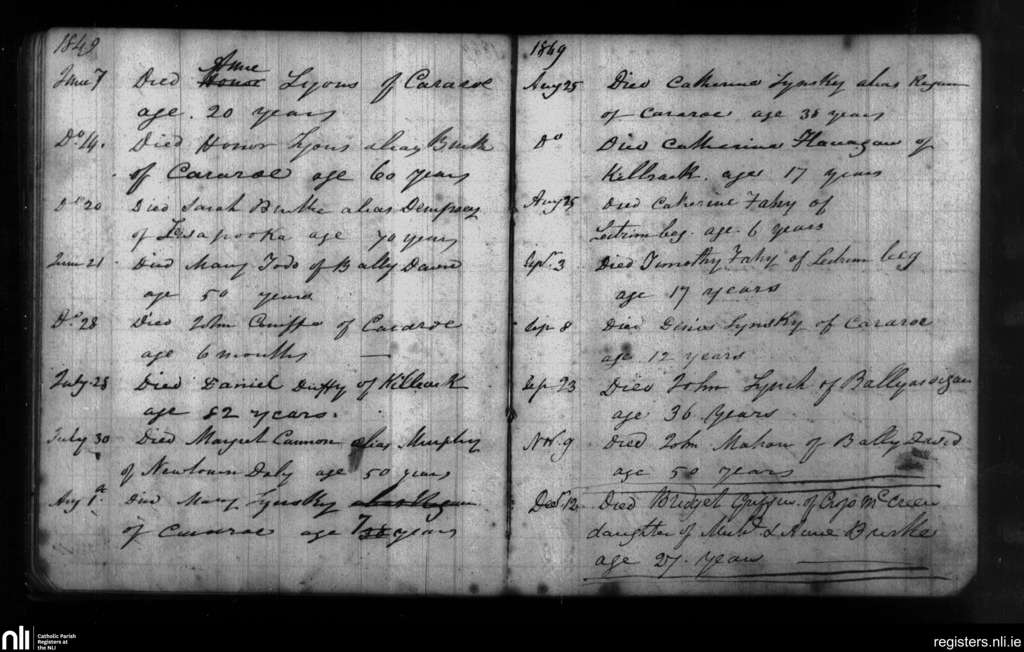 1849
June 7 Died Anne Honor Lyons of Cararoe
age. 20 years
Do 14. Died Honor Lyons alias Burk
of Cararoe age 60 years
Do 20 Died Sarah Burke alias Dempsey
of age 70 years
June 21 Died Mary Todd of Bally David
age 50 years
Do 28 Died John of Cararoe
age 6 months
July 28 Died Daniel Duffy of Killeack
age 82 years.
July 30 Died Margret Cannon alias Murphy
of Newtown Daly age 50 years
Aug 1. Died Mary Lynsky
of Cararoe age years
1849
Aug 25 Died Catherine Lynsky alias
of Cararoe age 35 years
Do Died Catherine Flanagan of
Killeack. age 17 years
Aug 25 Died Catherine Fahy of
Leitrim beg. age. 6 years
Sep. 3 Died Timothy Fahy of Leitrim beg
age 17 years
Sep 8 Died Denis Lynsky of Cararoe
age 12 years
Sep 23 Died John Lynch of
age 36 years
Nov. 9 Died John Mahon of Bally David
age 50 years
Decr. 12 Died Bridget Griffin of
daughter of Michl & Anne Burke
age 27. years
nli Catholic Parish
Registers at
the NLI
registers.nli.ie